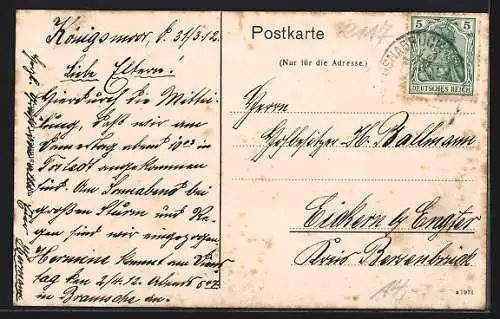 Königsmoor, d. 31/3.12.
Liebe Eltern!
Hierdurch die Mittei-
lung, daß wir am
abend
Tostedt angekommen
sind. Am Sonnabend bei
großen Sturm und Re-
gen sind wir eingezogen.
Hermine kommt am Diens
tag den 2/4.12. Abends
in Bramsche an.
Postkarte
(Nur für die Adresse.)
5 5
DEUTSCHES REICH
Herrn
Hofbesitzer H. Ballmann
Eickern b/ Engter
Kreis Bersenbrück